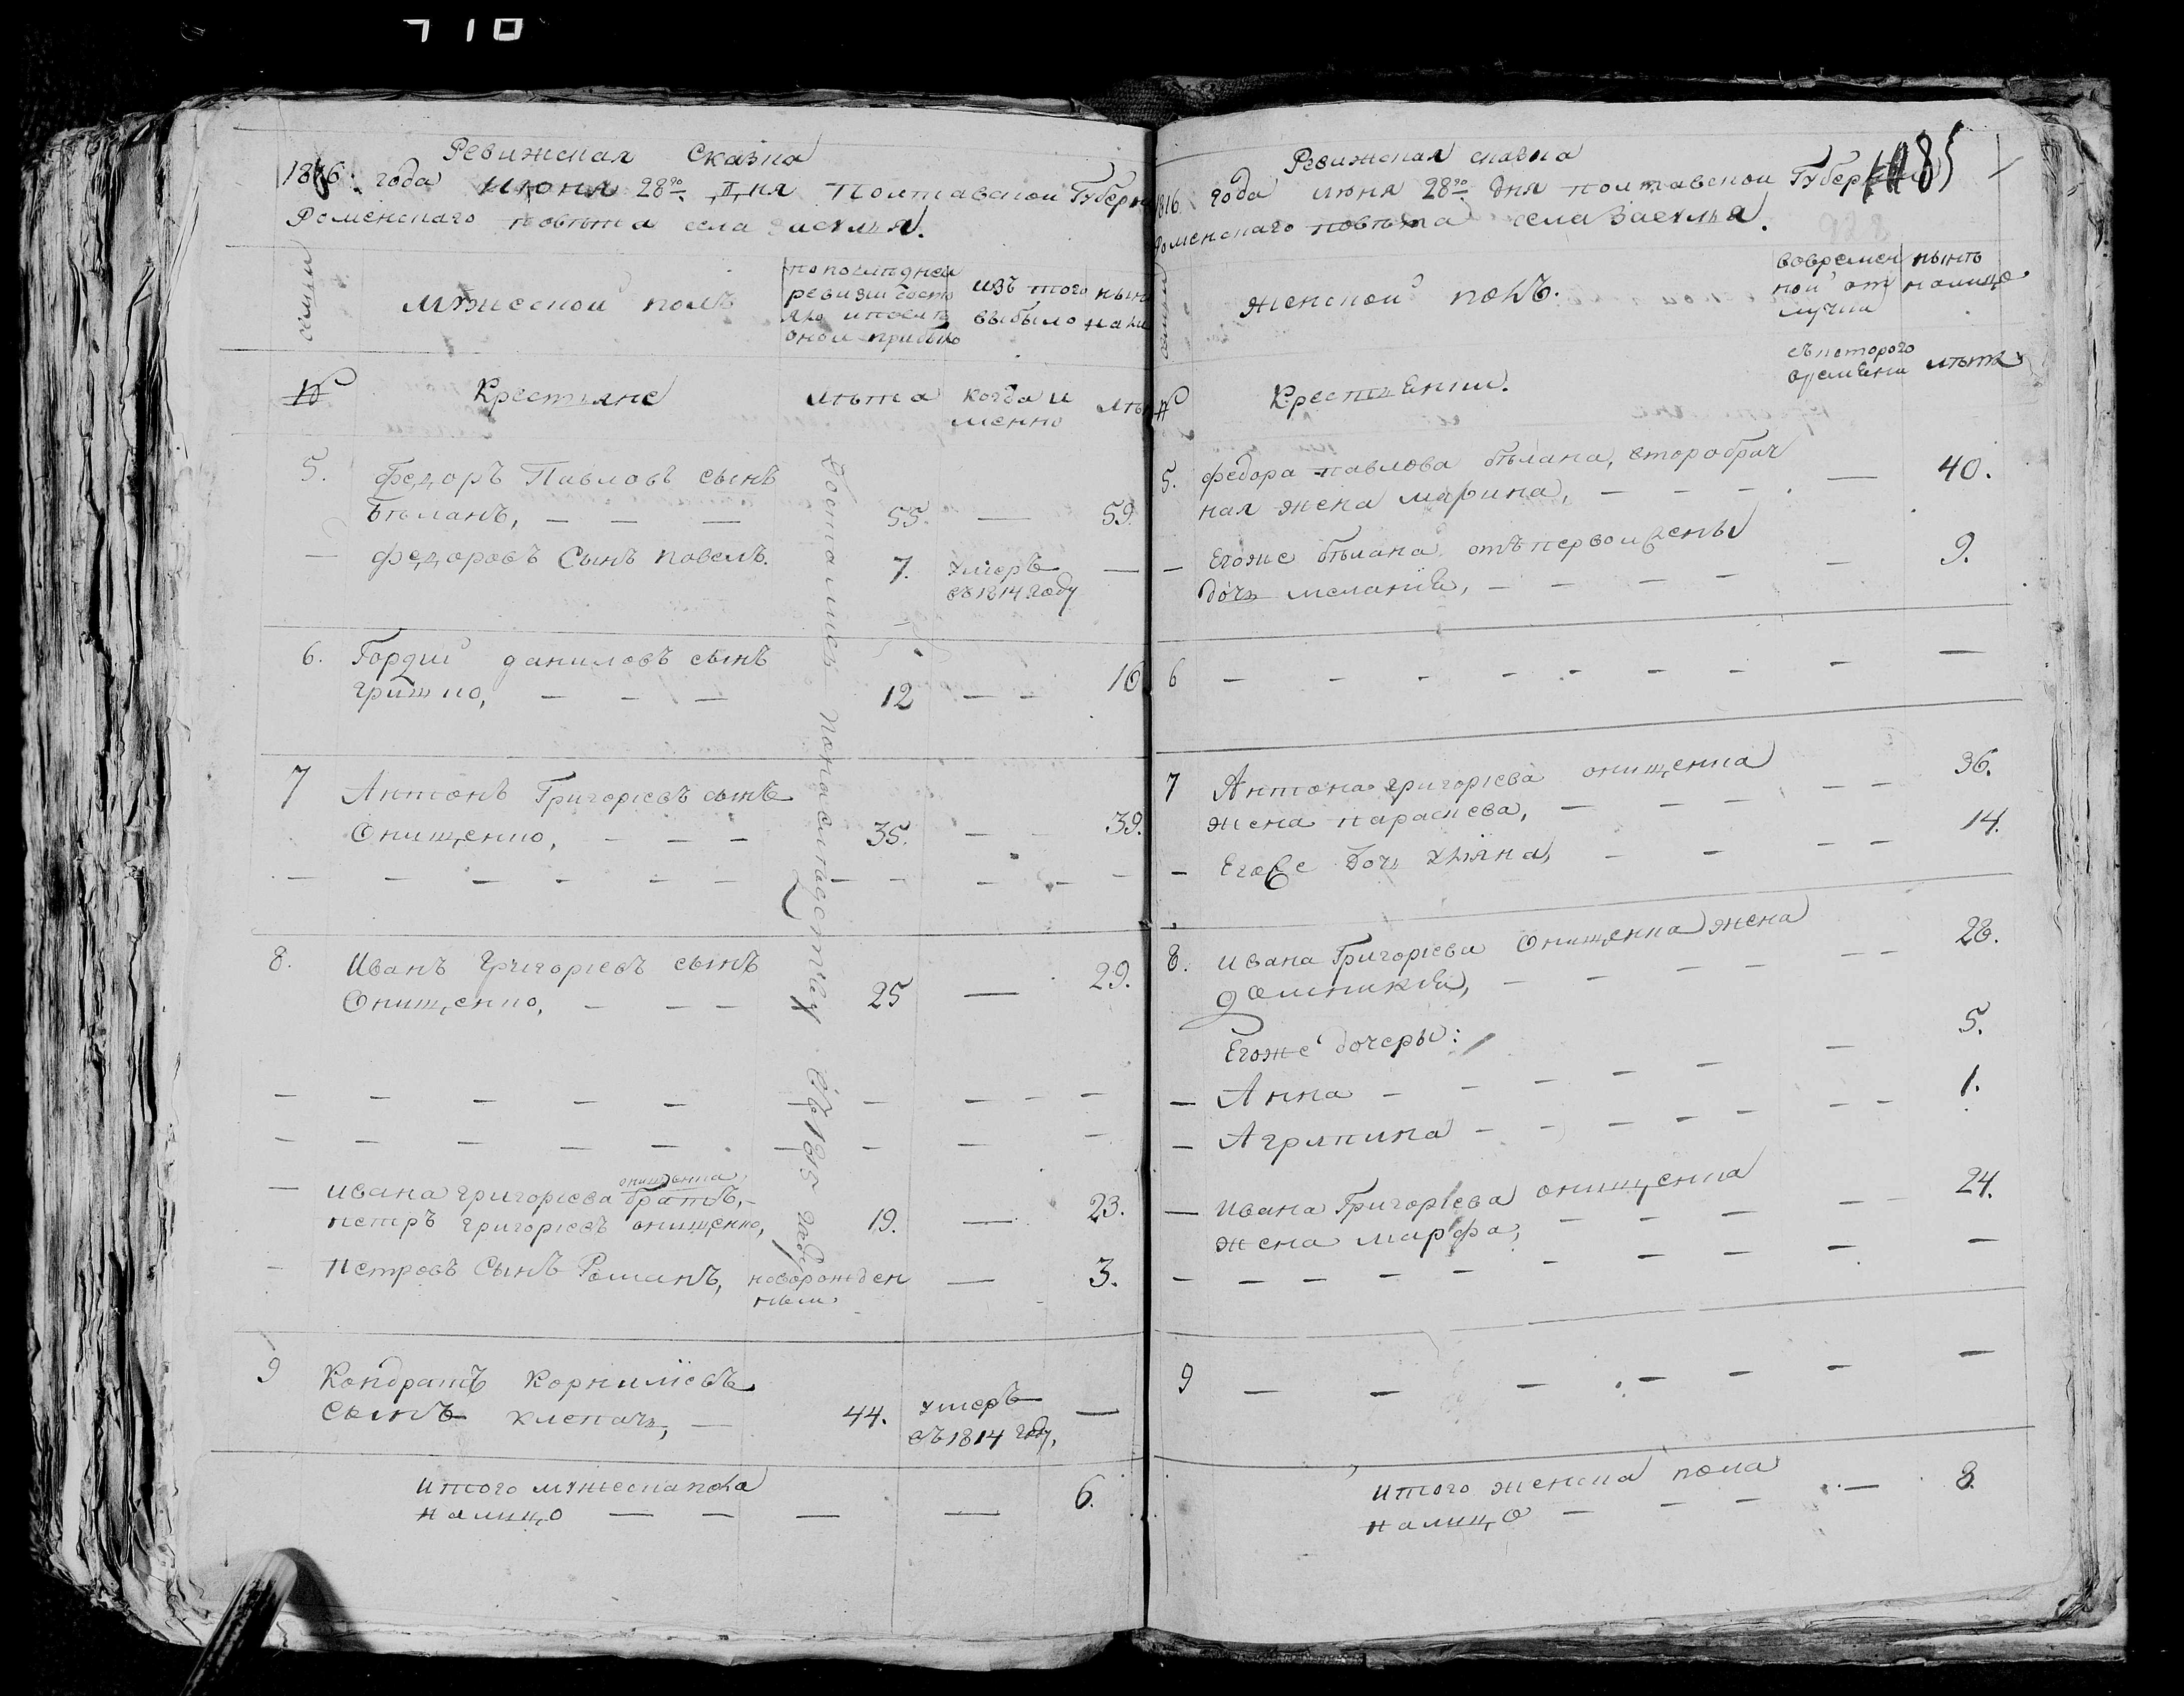 710
Ревижская Сказка
1816. года Июня 28го Дня Полтавской Губерн
Роменскаго повѣта села Засулья.
семьи
мужеской полъ
по последней
ревизии состо
яло и после
оной прибыло
изъ того
выбыло
нын
нали
№
Крестьяне
лѣта
когда и
менно
лѣт
5. Федоръ Павловъ сынъ
Бѣланъ, — — — 55. — 59.
— Федоровъ Сынъ Павелъ. 7. умеръ —
въ 1814 году
6. Гордий даниловъ сынъ
гришко, — — — 12 — — 16
7 Антонъ Григориевъ сынъ
Онищенко, — — — 35. — — 39.
8. Иванъ Григориевъ сынъ
Онищенко, — — — 25 — 29.
онищенка
— ивана григориева братъ, —
петръ григориевъ онищенко, 19. — 23.
— Петровъ Сынъ Романъ, новорожден — 3.
ныи
9 Кондратъ Корнилїевъ
сынъ клепачъ, — 44. умеръ —
въ 1814 году,
Итого мужеска пола
налицо — — — — 6.
185
Ревижская сказка
1816 года июня 28го дня полтавской Губернии
Роменскаго повѣта села Засулья.
женской полъ.
вовремен
ной от
лучки
нынѣ
налицо
№
Крестьянки.
съ которого
времени
лѣта
5. федора павлова бѣлана, второбрач
ная жена марина, — — — — 40.
— Егоже бѣлана отъ первои жены
дочь меланія, — — — — — 9.
6 — — — — — — — —
7 Антона григориева онищенка
жена параскева, — — — — — 36.
— Егоже дочь улїяна, — — — — 14.
8. ивана Григориева Онищенка жена
доминикия, — — — — — — 26.
Егоже дочеры:
— Анна — — — — — — 5.
— Агрипина — — — — — — 1.
— Ивана Григориева онищенка
жена марфа, — — — — — 24.
9 — — — — — — —
итого женска пола
налицо — — — — 8.